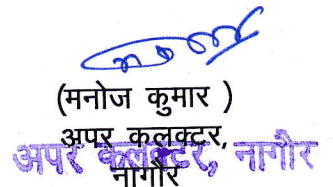 (मनोज कुमार )
अपर कलक्टर,
नागौर
अपर कलेक्टर, नागौर